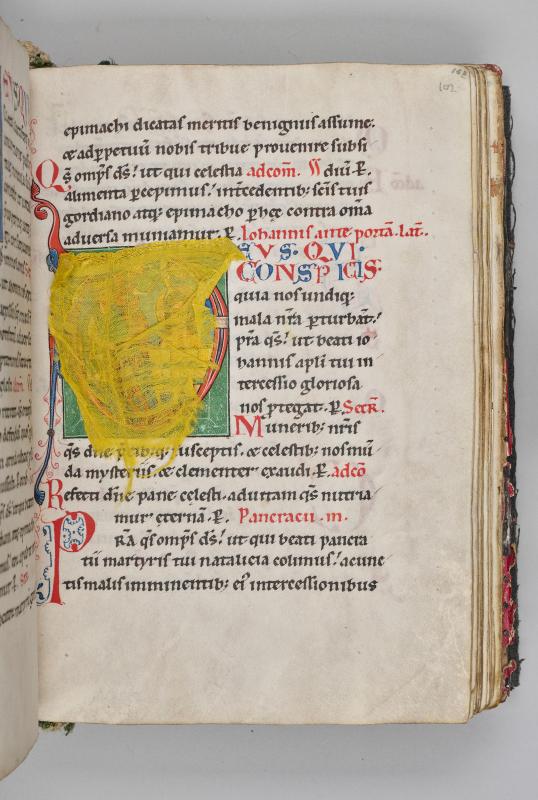 epimachi dicatas meritis benignus assume.
& adp̱petuū nobis tribue prouenire subsi
Qs̄ om̄ps d̄s! ut qui celestia adcōm. diū. P̱.
alimenta p̱cepimus! int̄cedentib; sc̄is tuis
gordiano atq; epimacho p̱hęc contra om̄a
aduersa muniamur. P̱. Iohannis ante portā. lat̄.
EVS. QVI.
CONSPICIS.
quia nos undiq;
mala nr̄a p̱turbat̄.
p̄ra qs̄! ut beati io
hannis apl̄i tui in
tercessio gloriosa
nos p̱tegat. P̱. Secr̄.
Munerib; nr̄is
qs̄ dn̄e usceptis. & celestib; nos mū
da mysteriis. & clementer exaudi. P̱. adcō
Refecti dn̄e pane celesti. ad uitam qs̄ nutria
mur ęternā. P̱. Pancracii. m.
PRA qs̄ om̄ps d̄s! ut qui beati pancra
tii martyris tui natalicia colimus! a cunc
tis malis imminentib; eī intercessionibus